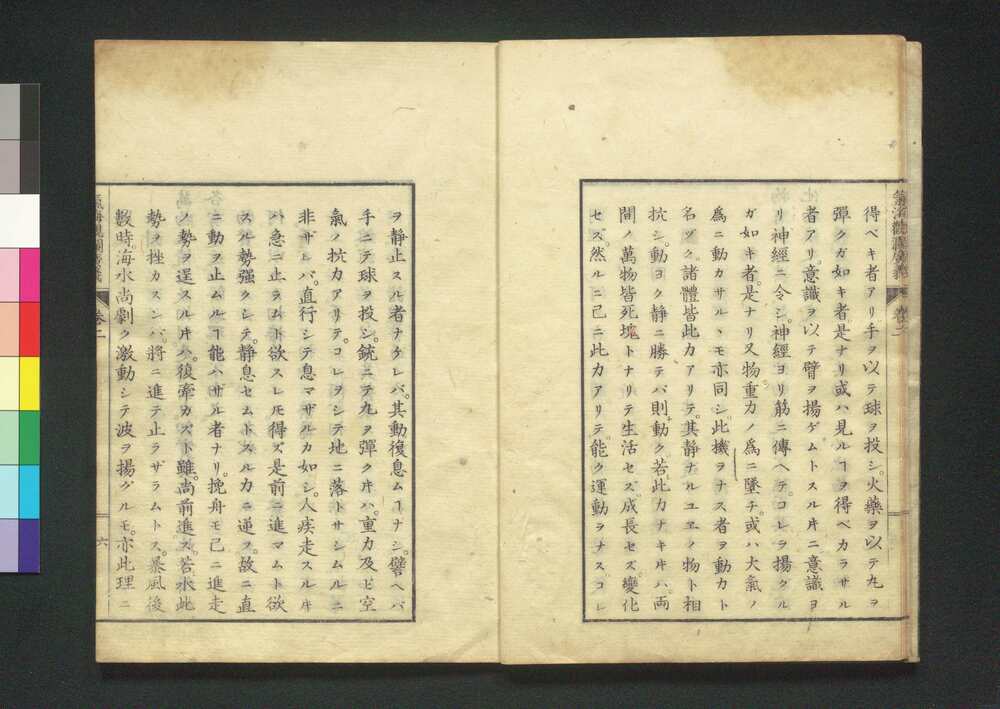 得ベキ者アリ手ヲ以テ球ヲ投シ。火藥ヲ以テ丸ヲ
彈クガ如キ者是ナリ或ハ見ルヿヲ得ベカラサル
者アリ。意識ヲ以テ臂ヲ揚ゲムトスル𪜈ニ意識ヨ
リ神經ニ令シ。神經ヨリ筋ニ傳ヘテ。コレヲ揚クル
ガ如キ者。是ナリ又物重力ノ爲ニ墜チ。或ハ大氣ノ
爲ニ動カサルヽモ亦同シ。此機ヲナス者ヲ動力ト
名ヅク。諸體皆此力アリテ。其静ナルユヱノ物ト相
抗シ。動ヨク静ニ勝テバ則動ク若此力ナキ𪜈ハ。両
間ノ萬物皆死塊トナリテ生活セズ。成長セズ。變化
セズ。然ルニ已ニ此力アリテ。能ク運動ヲナスコレ
氣海觀瀾廣義 卷二
ヲ静止スル者ナケレバ。其動復息ムヿナシ。譬ヘバ
手ニテ球ヲ投シ。銃ニテ丸ヲ彈ク𪜈ハ。重力及ビ空
氣ノ抗力アリテ。コレヲシテ地ニ落トサシムルニ
非ザレバ。直行シテ息マザルカ如シ。人疾走スル𪜈
ハ急ニ止ラムト欲スレ𪜈得ズ是前ニ進マムト欲
スル勢强クシテ。静息セムトスルカニ逆フ。故ニ直
ニ動ヲ止ムルヿ能ハザル者ナリ。挽舟モ已ニ進走
ノ勢ヲ逞スル𪜈ハ。後牽カズト雖。尚前進ス。若水此
勢ヲ挫カスンバ。將ニ進テ止ラザラムトス。暴風後
數時。海水尚劇ク激動シテ波ヲ揚グルモ。亦此理ニ
卷二
六